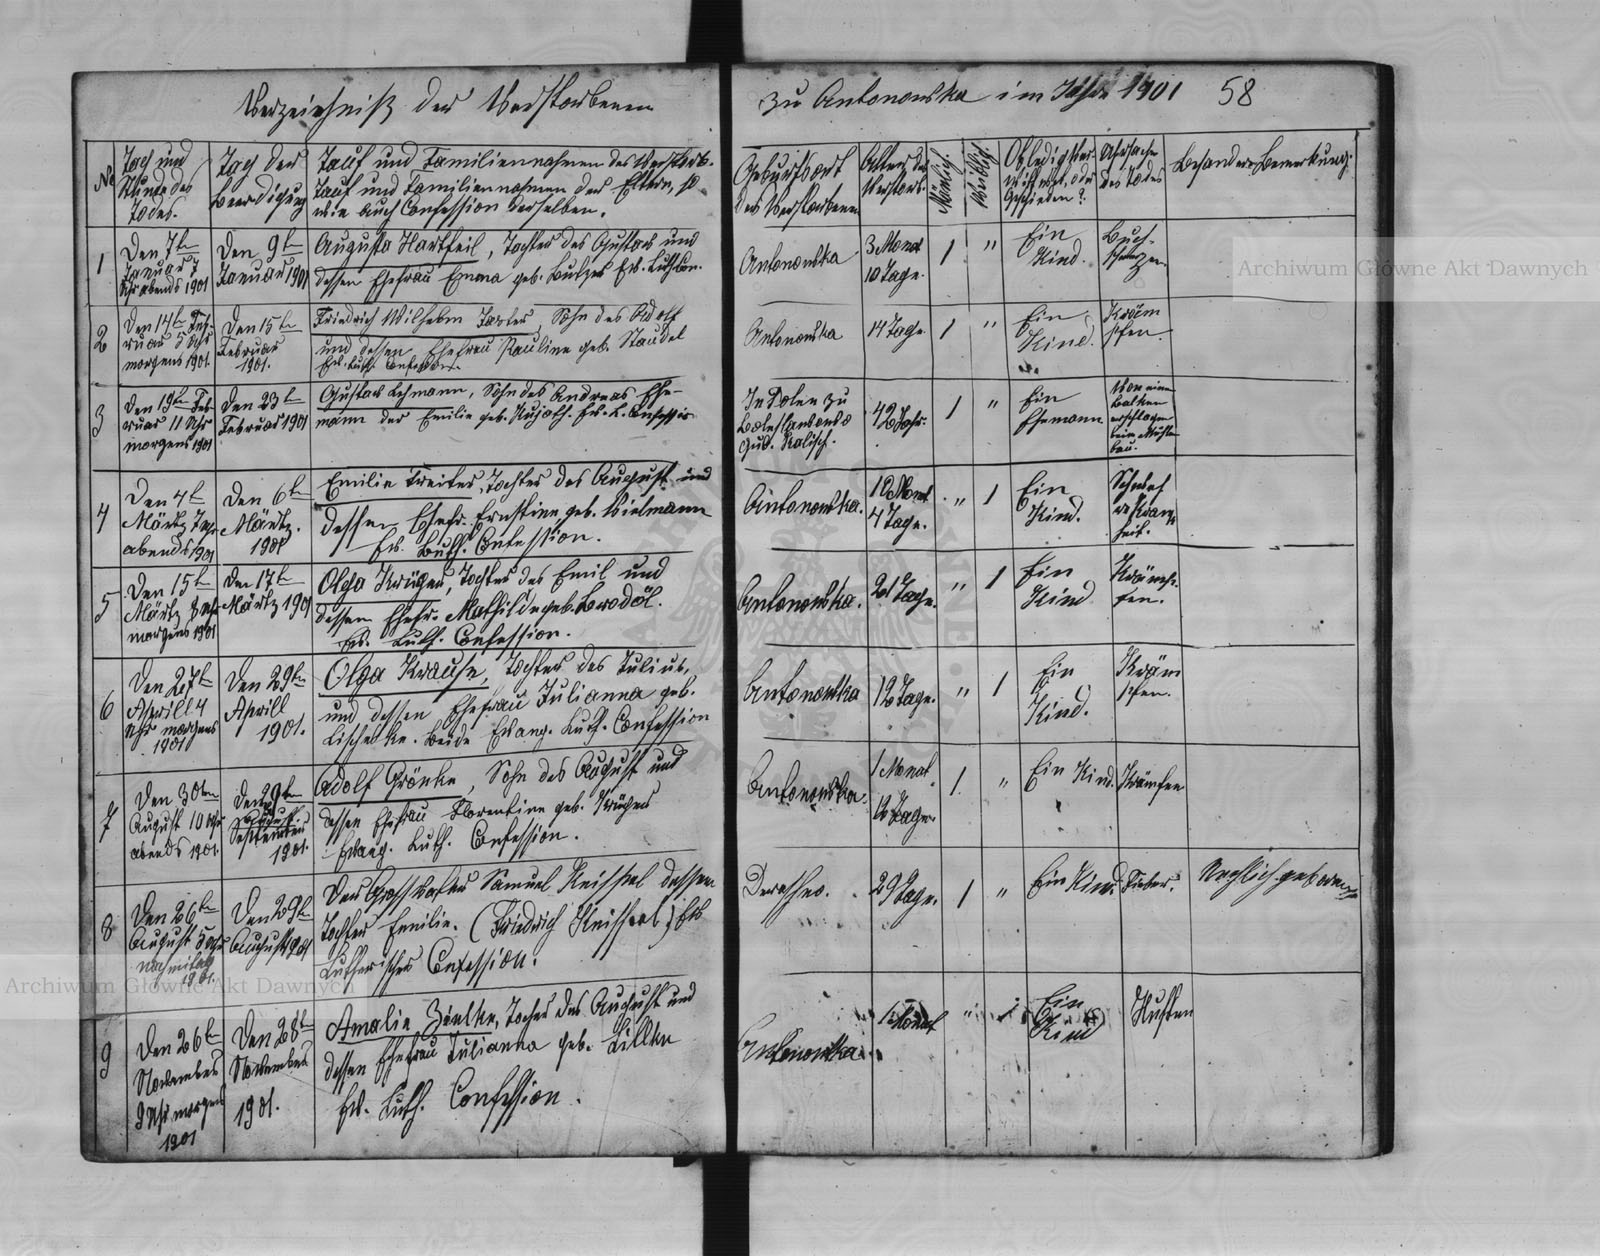 Verzeichniß der Verstorbenen
zu Antonowka im Jahre 1901 58
No
Tag und
Stunde des
Todes.
Tag der
Beerdigung
Tauf und Familiennahmen des Verstorb.
Tauf und Familiennahmen der Eltern, so
wie auch Confession derselben.
Geburtsort
des Verstorbenen
Alter des
Verstorb.
Mänlich.
Weiblich.
Ob ledig, ver-
Geschieden?
Uhrsache
des Todes
Besondere Bemerkung.
1
Den 7ten
Januar 7
Uhr abends 1901
Den 9ten
Januar 1901
Augusta Hartfeil, Tochter des Gustav und
dessen Ehefrau Emma geb. Ev. Luth. Con.
Antonowka
3 Monat
10 Tage.
1
"
Ein
Kind.
2
Den 14ten Feb-
ruar 5 Uhr
morgens 1901.
Den 15ten
Februar
1901.
Friedrich Wilhelm Sohn des Adolf
und dessen Ehefrau Pauline geb. Staudel
Ev. Luth. Confession.
Antonowka
14 Tage
1
"
Ein
Kind.
Kräm
pfen.
3
Den 19ten Feb-
ruar 11 Uhr
morgens 1901
Den 23ten
Februar 1901
Gustav Lehmann, Sohn des Andreas Ehe-
mann der Emilie geb. Kujath. Ev. L. Confession
In Polen zu
Gud. Kalisch.
42 Jahr.
1
"
Ein
Ehemann
Von einem
Balken
erschlagen
beim Mühlen
bau.
4
Den 4ten
Märtz 7 Uhr
abends 1901
Den 6ten
Märtz.
1901
Emilie Treiter, Tochter des August und
dessen Ehefr. Ernstine geb. Wielmann
Ev. Luth. Confession.
Antonowka.
12 Monat
4 Tage.
"
1
Ein
Kind.
5
Den 15ten
Märtz 8 Uhr
morgens 1901
Den 17ten
Märtz 1901
Olga Krüger, Tochter des Emil und
dessen Ehefr. Mathilde geb.
Ev. Luth. Confession.
Antonowka.
21 Tage.
"
1
Ein
Kind
6
Den 27ten
Aprill 4
Uhr morgens
1901
Den 29ten
Aprill
1901.
Olga Krause, Tochter des Julius,
und dessen Ehefrau Julianna geb.
Lischetke. beide Evang. Luth. Confession
Antonowka
12 Tage.
"
1
Ein
Kind.
Kräm
pfen.
7
Den 30ten
August 10 Uhr
abends 1901.
August
September
1901.
Adolf Grönke, Sohn des August und
dessen Ehefrau Florentine geb. Krüger
Evang. Luth. Confession.
Antonowka.
1 Monat
12 Tage.
1
"
Ein Kind.
Krämfen
8
Den 26ten
August 5 Uhr
nachmitag
1901.
Den 29ten
August 1901
Des Grossvater Samuel Keissel dessen
Tochter Emilie. (Friedrich Keissel) Ev
Lutherischer Confession.
29 Tage.
1
"
Ein Kind.
Fieber.
9
Den 26ten
November
9 Uhr morgen
1901
Den 28ten
November
1901.
Amalie Zielke, Tocher des August und
dessen Ehefrau Julianna geb.
Ev. Luth. Confession.
Antonowka.
1 Monat
"
1
Ein
Kind
Husten
Archiwum Główne Akt Dawnych
Archiwum Główne Akt Dawnych